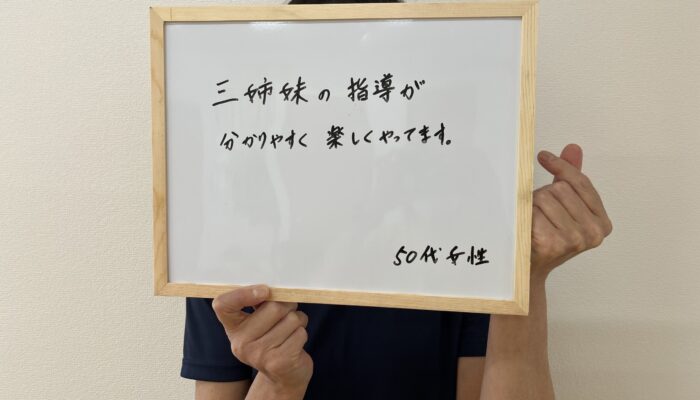 三姉妹の指導が
分かりやすく楽しくやってます。
50代女性